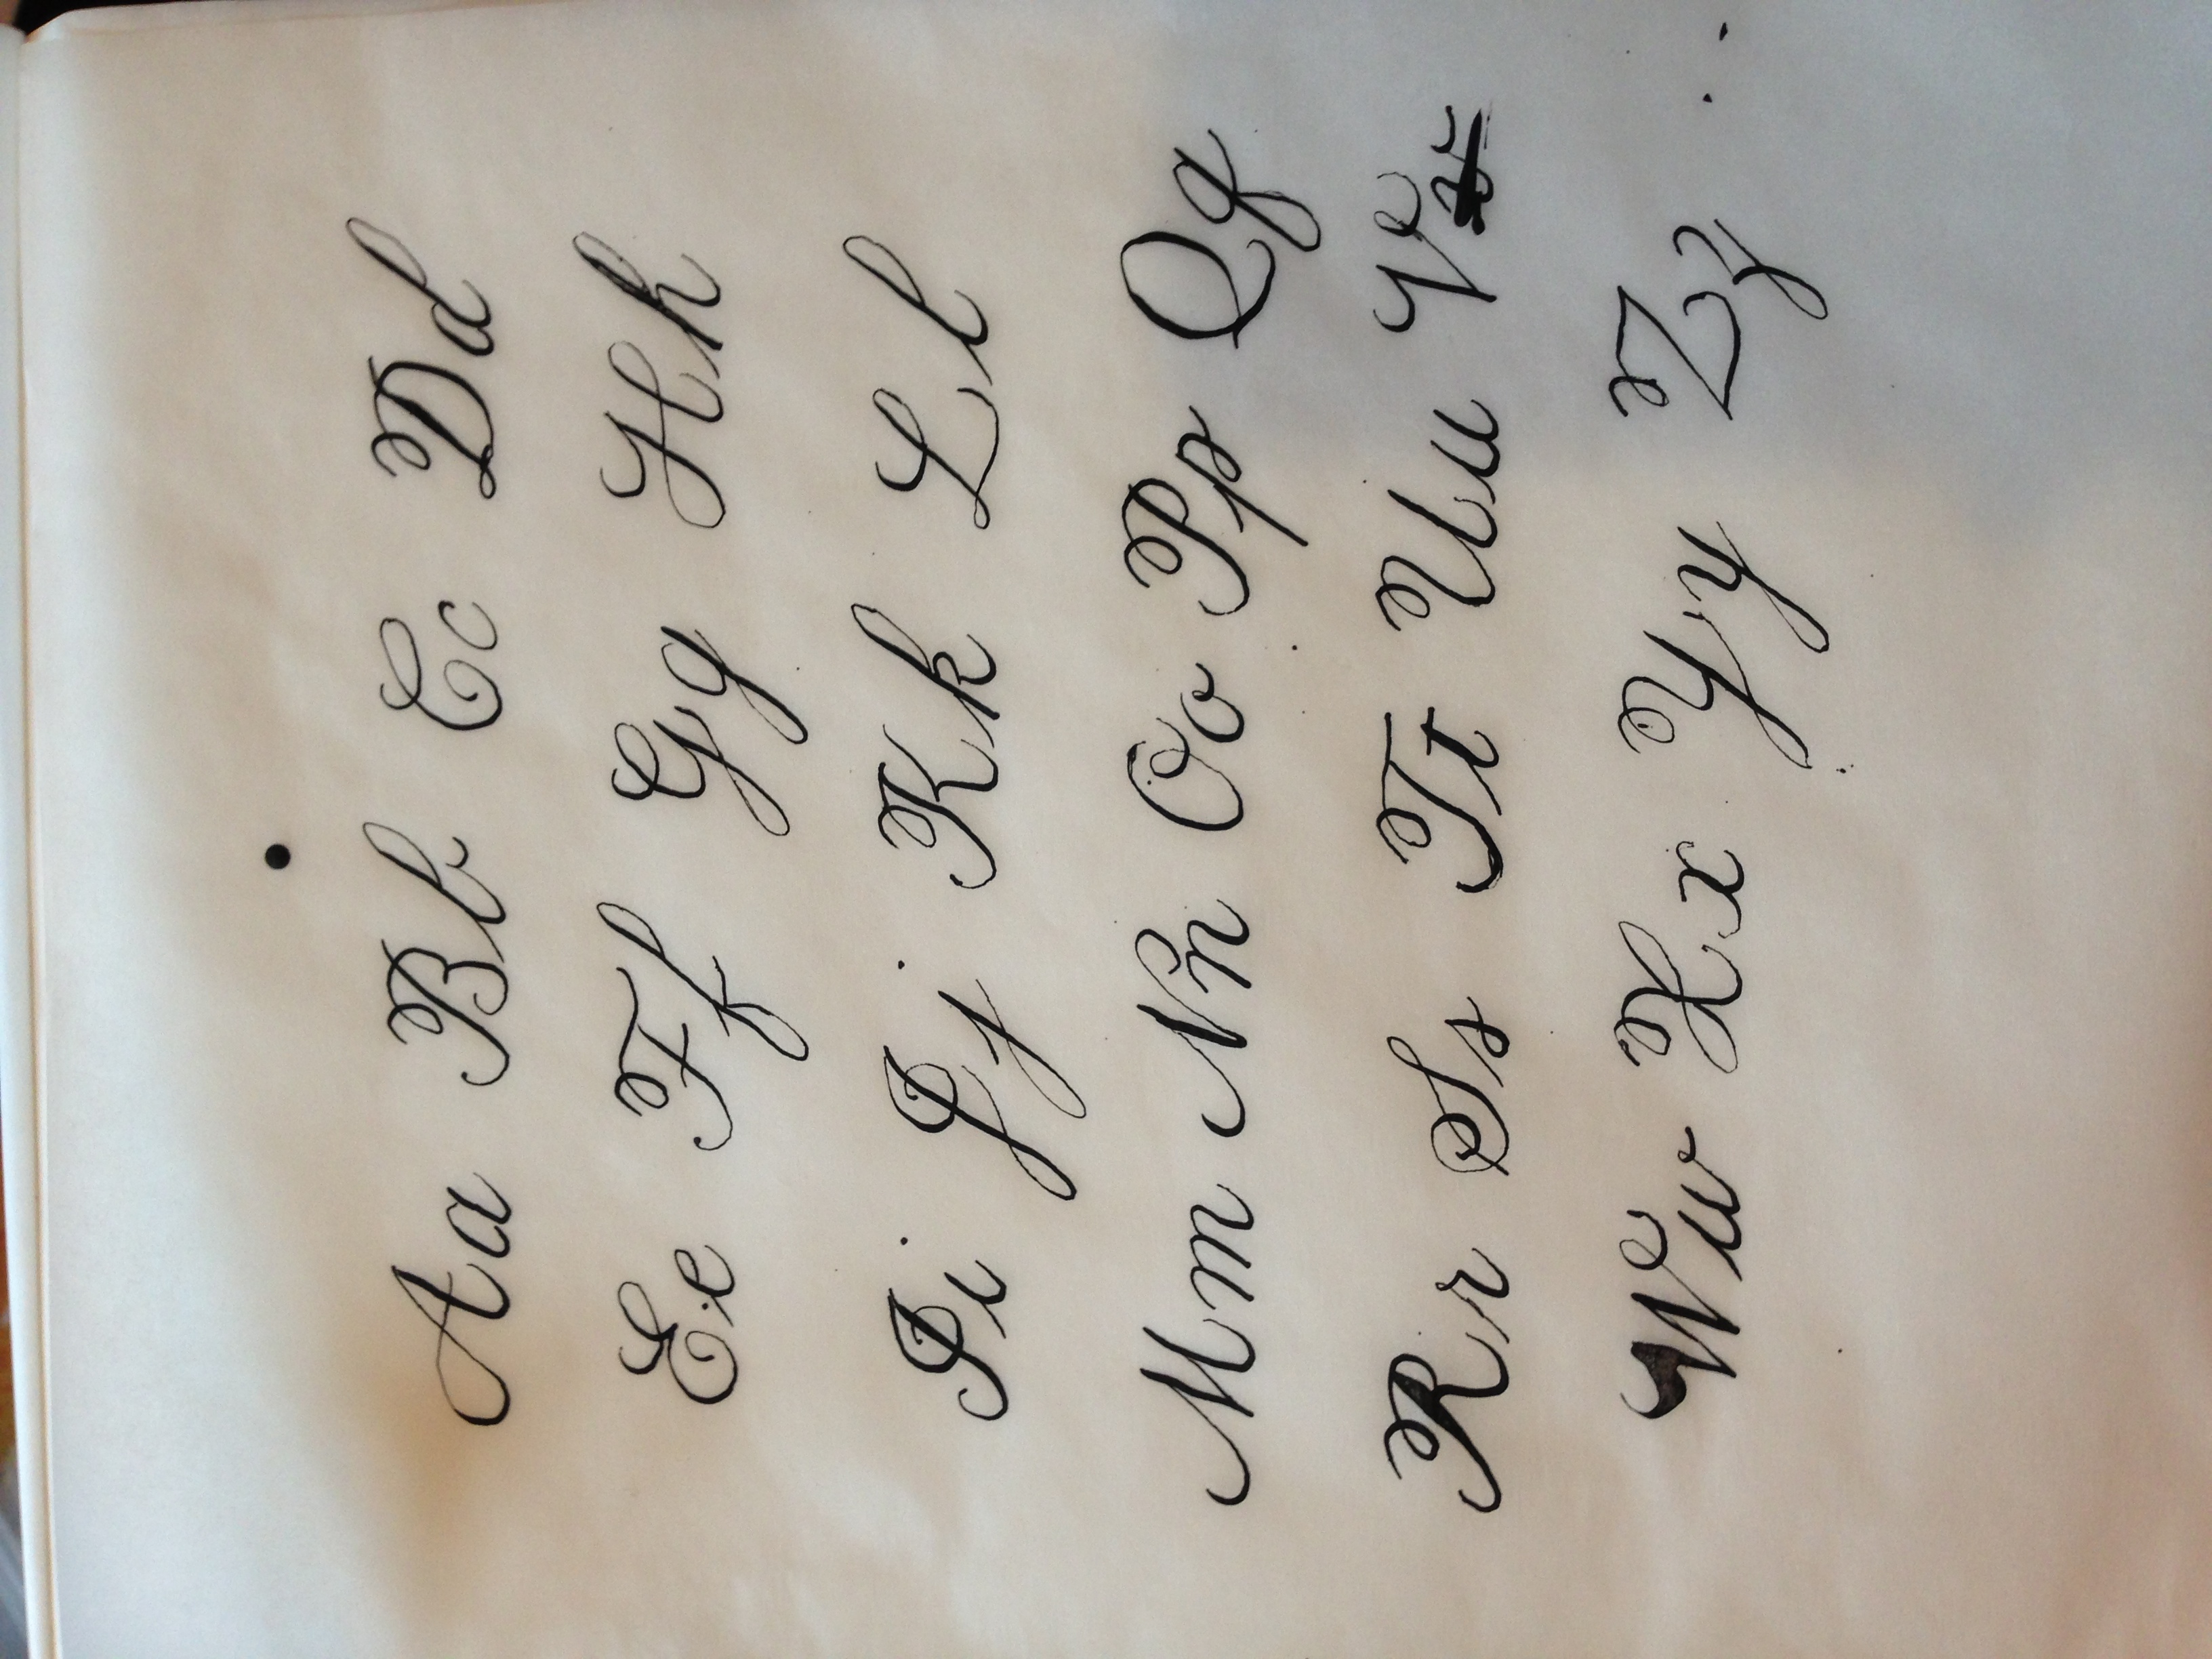 Aa Bb Cc Dd
Ee Ff Gg Hh
Ii Jj Kk Ll
Mm Nn Oo Pp Qq
Rr Ss Tt Uu Vv
Ww Xx Yy Zz